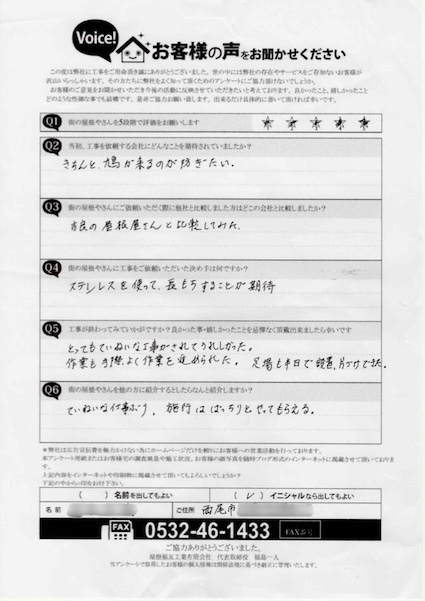 Voice!
お客様の声をお聞かせください
この度は弊社に工事をご用命頂き誠にありがとうございました。世の中には弊社の存在やサービスをご存知ないお客様が
沢山いらっしゃいます。その方たちに弊社をよく知って頂くためのアンケートにご協力頂けないでしょうか。
お客様のご意見をお聞かせいただき今後の活動に反映させていただきたいと考えております。良かったこと、嬉しかったこと
どのような些細な事でも結構です。是非ご協力お願い致します。出来るだけ具体的に書いて頂ければ幸いです。
Q1 街の屋根やさんを5段階で評価をお願いします ★ ★ ★ ★ ★
Q2 当初、工事を依頼する会社にどんなことを期待されていましたか?
きちんと、鳩が来るのが防ぎたい.
Q3 街の屋根やさんにご依頼いただく際に他社と比較しました方はどこの会社と比較しましたか?
の屋根屋さんと比較してみた.
Q4 街の屋根やさんに工事をご依頼いただいた決め手は何ですか?
ステンレスを使って、長もちすることが期待
Q5 工事が終わってみていかがですか?良かった事・嬉しかったことを忌憚なく頂戴出来ましたら幸いです
とってもていねいな工事がされてうれしかった。
作業も手際よく作業を進められた。足場も半日で設置、片づけできた.
Q6 街の屋根やさんを他の方に紹介するとしたらなんと紹介しますか?
ていねいな仕事ぶり、施行はばっちりとやってもらえる。
*弊社は広告宣伝費を極力かけない為にホームページだけを頼りにお客様への営業活動を行っております。
本アンケート用紙またはお客様宅の調査風景や施工状況、お客様の顔写真を随時ブログ形式のインターネットに掲載させて頂いております。
上記内容をインターネットや印刷物に掲載させて頂いてもよろしいでしょうか?
下記の中から○印をお付下さい。
( ) 名前を出してもよい ( レ ) イニシャルなら出してもよい
名前 ご住所 西尾市
FAX 0532-46-1433
ご協力ありがとうございました。
屋根福瓦工業有限会社 代表取締役 福島一人
当アンケートで取得したお客様の個人情報は関係法規に基づき厳正に管理いたします。